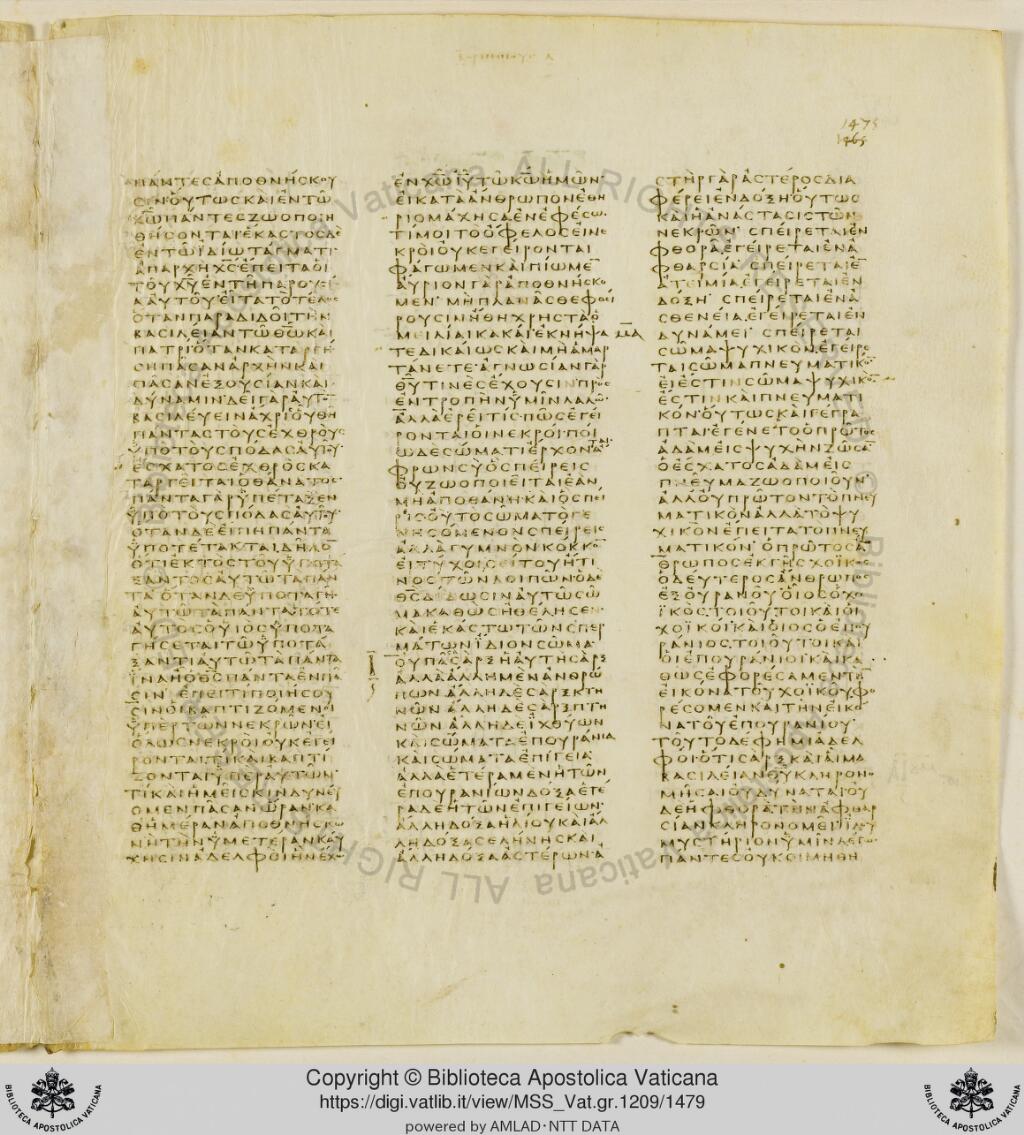 ΠΑΝΤΕϹΑΠΟΘΝΗϹΚΟΥ
ϹΙΝΟΥΤΩϹΚΑΙΕΝΤΩ
ΧΩΠΑΝΤΕϹΖΩΟΠΟΙΗ
ΘΗϹΟΝΤΑΙΕΚΑϹΤΟϹΔΕ
ΕΝΤΩΙΔΙΩΤΑΓΜΑΤΙ
ΑΠΑΡΧΗΧϹΕΠΕΙΤΑΟΙ
ΤΟΥΧΥΕΝΤΗΠΑΡΟΥϹΙ
ΑΑΥΤΟΥΕΙΤΑΤΟΤΕΛΟϹ
ΟΤΑΝΠΑΡΑΔΙΔΟΙΤΗΝ
ΒΑϹΙΛΕΙΑΝΤΩΘΩΚΑΙ
ΠΑΤΡΙΟΤΑΝΚΑΤΑΡΓΗ
ϹΗΠΑϹΑΝΑΡΧΗΝΚΑΙ
ΠΑϹΑΝΕΞΟΥϹΙΑΝΚΑΙ
ΔΥΝΑΜΙΝΔΕΙΓΑΡΑΥΤΟ̄
ΒΑϹΙΛΕΥΕΙΝΑΧΡΙΟΥΘΗ
ΠΑΝΤΑϹΤΟΥϹΕΧΘΡΟΥϹ
ΥΠΟΤΟΥϹΠΟΔΑϹΑΥΤΟΥ
ΕϹΧΑΤΟϹΕΧΘΡΟϹΚΑ
ΤΑΡΓΕΙΤΑΙΟΘΑΝΑΤΟϹ
ΠΑΝΤΑΓΑΡΥΠΕΤΑΞΕΝ
ΥΠΟΤΟΥϹΠΟΔΑϹΑΥΤΟΥ
ΟΤΑΝΔΕΕΙΠΗΠΑΝΤΑ
ΥΠΟΤΕΤΑΚΤΑΙΔΗΛΟ̄
ΟΤΙΕΚΤΟϹΤΟΥΥΠΟΤΑ
ΞΑΝΤΟϹΑΥΤΩΤΑΠΑΝ
ΤΑΟΤΑΝΔΕΥΠΟΤΑΓΗ
ΑΥΤΩΤΑΠΑΝΤΑΤΟΤΕ
ΑΥΤΟϹΟΥΙΟϹΥΠΟΤΑ
ΓΗϹΕΤΑΙΤΩΥΠΟΤΑ
ΞΑΝΤΙΑΥΤΩΤΑΠΑΝΤΑ
ΙΝΑΗΟΘϹΠΑΝΤΑΕΝΠΑ
ϹΙΝΕΠΕΙΤΙΠΟΙΗϹΟΥ
ϹΙΝΟΙΒΑΠΤΙΖΟΜΕΝΟΙ
ΥΠΕΡΤΩΝΝΕΚΡΩΝΕΙ
ΟΛΩϹΝΕΚΡΟΙΟΥΚΕΓΕΙ
ΡΟΝΤΑΙΤΙΚΑΙΒΑΠΤΙ
ΖΟΝΤΑΙΥΠΕΡΑΥΤΩΝ
ΤΙΚΑΙΗΜΕΙϹΚΙΝΔΥΝΕΥ
ΟΜΕΝΠΑϹΑΝΩΡΑΝΚΑ
ΘΗΜΕΡΑΝΑΠΟΘΝΗϹΚΩ
ΝΗΤΗΝΥΜΕΤΕΡΑΝΚΑΥ
ΧΗϹΙΝΑΔΕΛΦΟΙΗΝΕΧΩ
ΕΝΧΩΙΥΤΩΚΩΗΜΩΝ
ΕΙΚΑΤΑΑΝΘΡΩΠΟΝΕΘΗ
ΡΙΟΜΑΧΗϹΑΕΝΕΦΕϹΩ
ΤΙΜΟΙΤΟΟΦΕΛΟϹΕΙΝΕ
ΚΡΟΙΟΥΚΕΓΕΙΡΟΝΤΑΙ
ΦΑΓΩΜΕΝΚΑΙΠΙΩΜΕ̄
ΑΥΡΙΟΝΓΑΡΑΠΟΘΝΗϹΚΟ
ΜΕΝΜΗΠΛΑΝΑϹΘΕΦΘΕΙ
ΡΟΥϹΙΝΗΘΗΧΡΗϹΤΑΟ
ΜΕΙΛΙΑΙΚΑΚΑΙΕΚΝΗΨΑ
ΤΕΔΙΚΑΙΩϹΚΑΙΜΗΑΜΑΡ
ΤΑΝΕΤΕΑΓΝΩϹΙΑΝΓΑΡ
ΘΥΤΙΝΕϹΕΧΟΥϹΙΝΠΡΟϹ
ΕΝΤΡΟΠΗΝΥΜΙΝΛΑΛΩ
ΑΛΛΑΕΡΕΙΤΙϹΠΩϹΕΓΕΙ
ΡΟΝΤΑΙΟΙΝΕΚΡΟΙΠΟΙ
ΩΔΕϹΩΜΑΤΙΕΡΧΟΝΤΑΙ
ΑΦΡΩΝϹΥΟϹΠΕΙΡΕΙϹ
ΟΥΖΩΟΠΟΙΕΙΤΑΙΕΑΝ
ΜΗΑΠΟΘΑΝΗΚΑΙΟϹΠΕΙ
ΡΕΙϹΟΥΤΟϹΩΜΑΤΟΓΕ
ΝΗϹΟΜΕΝΟΝϹΠΕΙΡΕΙϹ
ΑΛΛΑΓΥΜΝΟΝΚΟΚΚΟ̄
ΕΙΤΥΧΟΙϹΕΙΤΟΥΗΤΙ
ΝΟϹΤΩΝΛΟΙΠΩΝΟΔΕ
ΘϹΔΙΔΩϹΙΝΑΥΤΩϹΩ
ΜΑΚΑΘΩϹΗΘΕΛΗϹΕΝ
ΚΑΙΕΚΑϹΤΩΤΩΝϹΠΕΡ
ΜΑΤΩΝΙΔΙΟΝϹΩΜΑ
ΟΥΠΑϹΑϹΑΡΞΗΑΥΤΗϹΑΡΞ
ΑΛΛΑΑΛΛΗΜΕΝΑΝΘΡΩ
ΠΩΝΑΛΛΗΔΕϹΑΡΞΚΤΗ
ΝΩΝΑΛΛΗΔΕϹΑΡΞΠΤΗ
ΝΩΝΑΛΛΗΔΕΙΧΘΥΩΝ
ΚΑΙϹΩΜΑΤΑΕΠΟΥΡΑΝΙΑ
ΚΑΙϹΩΜΑΤΑΕΠΙΓΕΙΑ
ΑΛΛΑΕΤΕΡΑΜΕΝΗΤΩΝ
ΕΠΟΥΡΑΝΙΩΝΔΟΞΑΕΤΕ
ΡΑΔΕΗΤΩΝΕΠΙΓΕΙΩΝ
ΑΛΛΗΔΟΞΑΗΛΙΟΥΚΑΙΑΛ
ΛΗΔΟΞΑϹΕΛΗΝΗϹΚΑΙ
ΑΛΛΗΔΟΞΑΑϹΤΕΡΩΝΑ
ϹΤΗΡΓΑΡΑϹΤΕΡΟϹΔΙΑ
ΦΕΡΕΙΕΝΔΟΞΗΟΥΤΩϹ
ΚΑΙΗΑΝΑϹΤΑϹΙϹΤΩΝ
ΝΕΚΡΩΝϹΠΕΙΡΕΤΑΙΕΝ
ΦΘΟΡΑΕΓΕΙΡΕΤΑΙΕΝΑ
ΦΘΑΡϹΙΑϹΠΕΙΡΕΤΑΙΕ̄
ΑΤΕΙΜΙΑΕΓΕΙΡΕΤΑΙΕΝ
ΔΟΞΗϹΠΕΙΡΕΤΑΙΕΝΑ
ϹΘΕΝΕΙΑΕΓΕΙΡΕΤΑΙΕΝ
ΔΥΝΑΜΕΙϹΠΕΙΡΕΤΑΙ
ϹΩΜΑΨΥΧΙΚΟΝΕΓΕΙΡΕ
ΤΑΙϹΩΜΑΠΝΕΥΜΑΤΙΚΟ̄
ΕΙΕϹΤΙΝϹΩΜΑΨΥΧΙΚΟ̄
ΕϹΤΙΝΚΑΙΠΝΕΥΜΑΤΙ
ΚΟΝΟΥΤΩϹΚΑΙΓΕΓΡΑ
ΠΤΑΙΕΓΕΝΕΤΟΟΠΡΩΤΟϹ
ΑΔΑΜΕΙϹΨΥΧΗΝΖΩϹᾹ
ΟΕϹΧΑΤΟϹΑΔΑΜΕΙϹ
ΠΝΕΥΜΑΖΩΟΠΟΙΟΥΝ
ΑΛΛΟΥΠΡΩΤΟΝΤΟΠΝΕΥ
ΜΑΤΙΚΟΝΑΛΛΑΤΟΨΥ
ΧΙΚΟΝΕΠΕΙΤΑΤΟΠΝΕΥ
ΜΑΤΙΚΟΝΟΠΡΩΤΟϹΑΝ
ΘΡΩΠΟϹΕΚΓΗϹΧΟΙΚΟϹ
ΟΔΕΥΤΕΡΟϹΑΝΘΡΩΠΟϹ
ΕΞΟΥΡΑΝΟΥΟΙΟϹΟΧΟ
ΙΚΟϹΤΟΙΟΥΤΟΙΚΑΙΟΙ
ΧΟΙΚΟΙΚΑΙΟΙΟϹΟΕΠΟΥ
ΡΑΝΙΟϹΤΟΙΟΥΤΟΙΚΑΙ
ΟΙΕΠΟΥΡΑΝΙΟΙΚΑΙΚΑ
ΘΩϹΕΦΟΡΕϹΑΜΕΝΤΗ̄
ΕΙΚΟΝΑΤΟΥΧΟΙΚΟΥΦΟ
ΡΕϹΟΜΕΝΚΑΙΤΗΝΕΙΚΟ
ΝΑΤΟΥΕΠΟΥΡΑΝΙΟΥ
ΤΟΥΤΟΔΕΦΗΜΙΑΔΕΛ
ΦΟΙΟΤΙϹΑΡΞΚΑΙΑΙΜΑ
ΒΑϹΙΛΕΙΑΝΘΥΚΛΗΡΟΝΟ
ΜΗϹΑΙΟΥΔΥΝΑΤΑΙΟΥ
ΔΕΗΦΘΟΡΑΤΗΝΑΦΘΑΡ
ϹΙΑΝΚΛΗΡΟΝΟΜΕΙΙΔΟΥ
ΜΥϹΤΗΡΙΟΝΥΜΙΝΛΕΓΩ
ΠΑΝΤΕϹΟΥΚΟΙΜΗΘΗ
1475
1465
Copyright © Biblioteca Apostolica Vaticana
https://digi.vatlib.it/view/MSS_Vat.gr.1209/1479
powered by AMLAD·NTT DATA
BIBLIOTECA APOSTOLICA VATICANA
BIBLIOTECA APOSTOLICA VATICANA